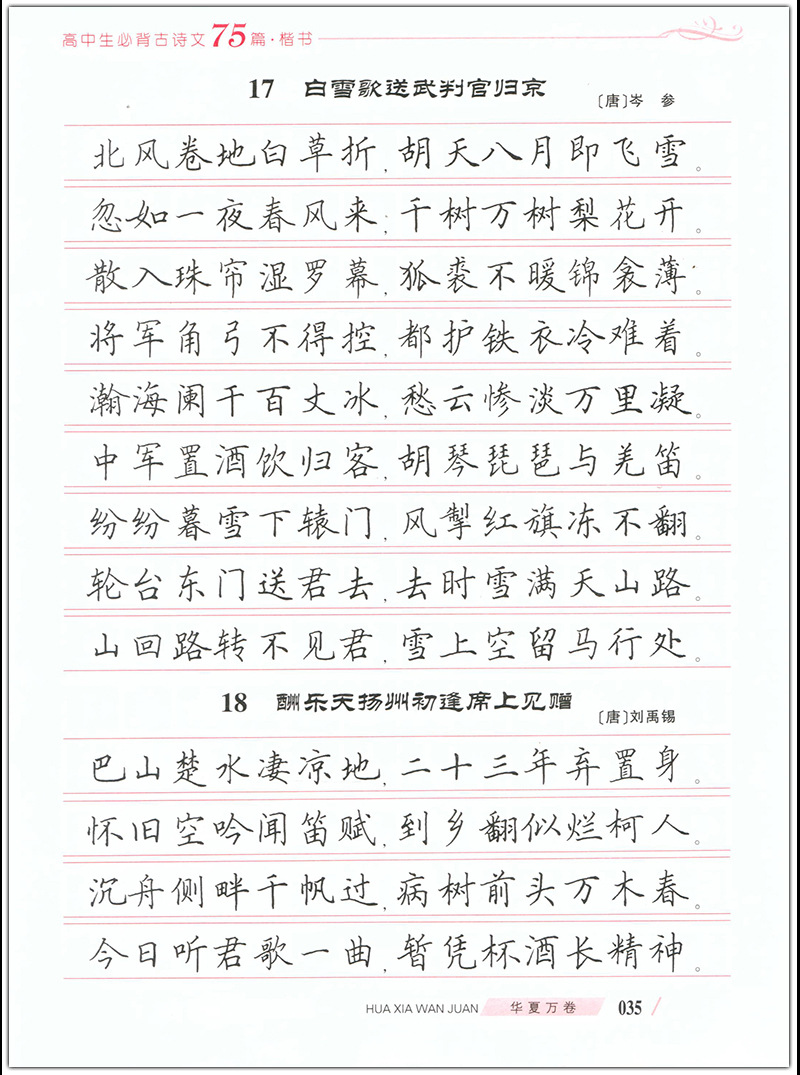 高中生必背古诗文75篇·楷书
17 白雪歌送武判官归京
〔唐〕岑 参
北风卷地白草折,胡天八月即飞雪。
忽如一夜春风来,千树万树梨花开。
散入珠帘湿罗幕,狐裘不暖锦衾薄。
将军角弓不得控,都护铁衣冷难着。
瀚海阑干百丈冰,愁云惨淡万里凝。
中军置酒饮归客,胡琴琵琶与羌笛。
纷纷暮雪下辕门,风掣红旗冻不翻。
轮台东门送君去,去时雪满天山路。
山回路转不见君,雪上空留马行处。
18 酬乐天扬州初逢席上见赠
〔唐〕刘禹锡
巴山楚水凄凉地,二十三年弃置身。
怀旧空吟闻笛赋,到乡翻似烂柯人。
沉舟侧畔千帆过,病树前头万木春。
今日听君歌一曲,暂凭杯酒长精神。
HUA XIA WAN JUAN 华夏万卷 035